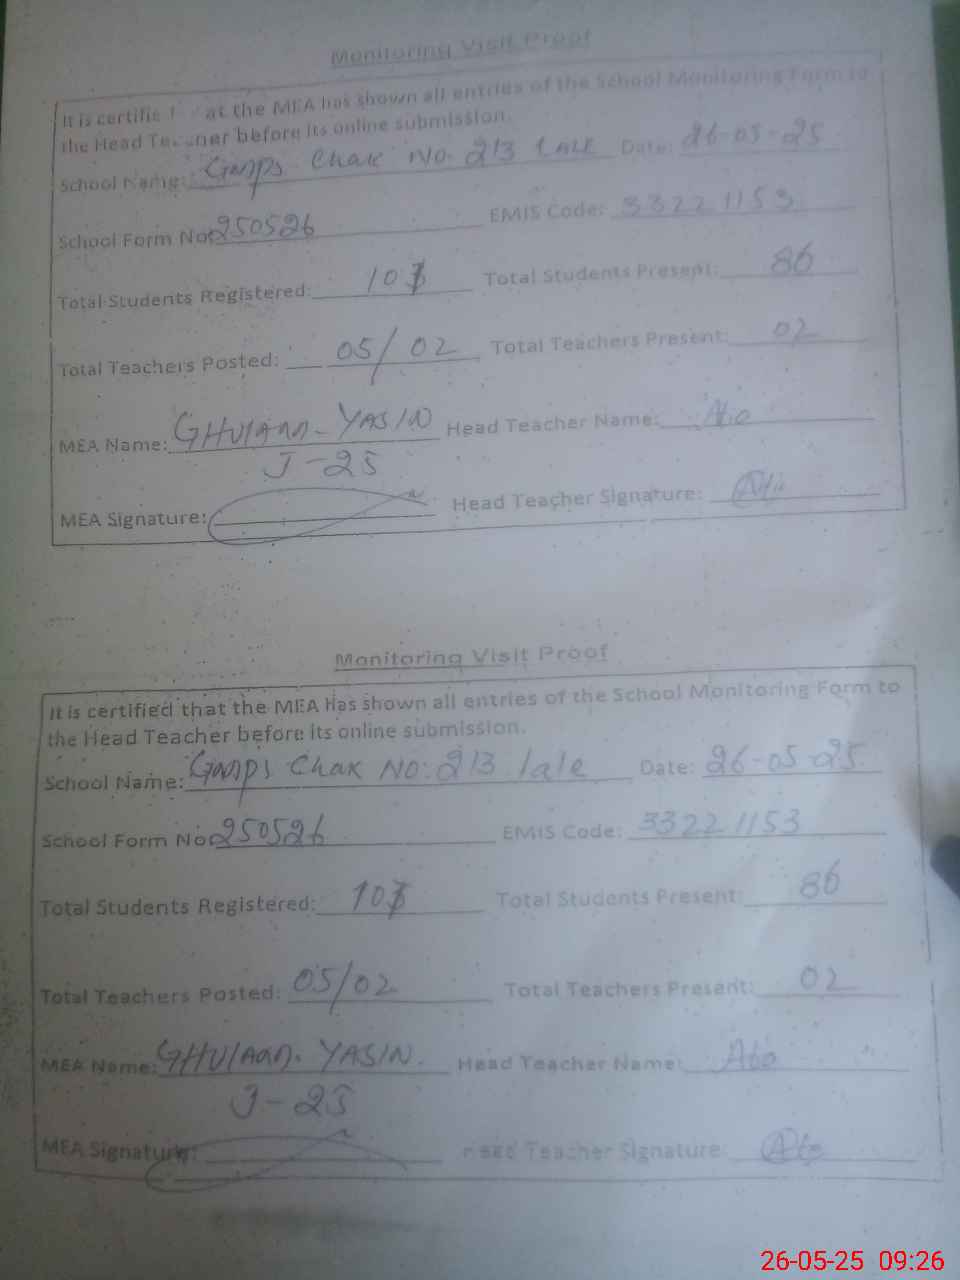 Monitoring Visit Proof
It is certifie at the MEA has shown all entries of the School Monitoring Form to
the Head Teacher before its online submission.
School Name: Gmps Chak No. 213 LALE Date: 26-05-25
School Form No: 250526 EMIS Code: 33221153
Total Students Registered: 103 Total Students Present: 86
Total Teachers Posted: 05/02 Total Teachers Present: 02
MEA Name: GHULAM-YASIN Head Teacher Name:
J-25
MEA Signature: Head Teacher Signature:
Monitoring Visit Proof
It is certified that the MEA has shown all entries of the School Monitoring Form to
the Head Teacher before its online submission.
School Name: Gmps Chak No: 213 lale Date: 26-05-25
School Form No: 250526 EMIS Code: 33221153
Total Students Registered: 103 Total Students Present: 86
Total Teachers Posted: 05/02 Total Teachers Present: 02
MEA Name: GHULAM. YASIN. Head Teacher Name:
J-25
MEA Signature: Head Teacher Signature:
26-05-25 09:26